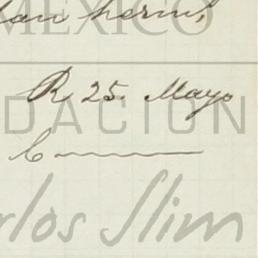 MEXICO
R 25. Mayo
DACION
C
rlos Slim